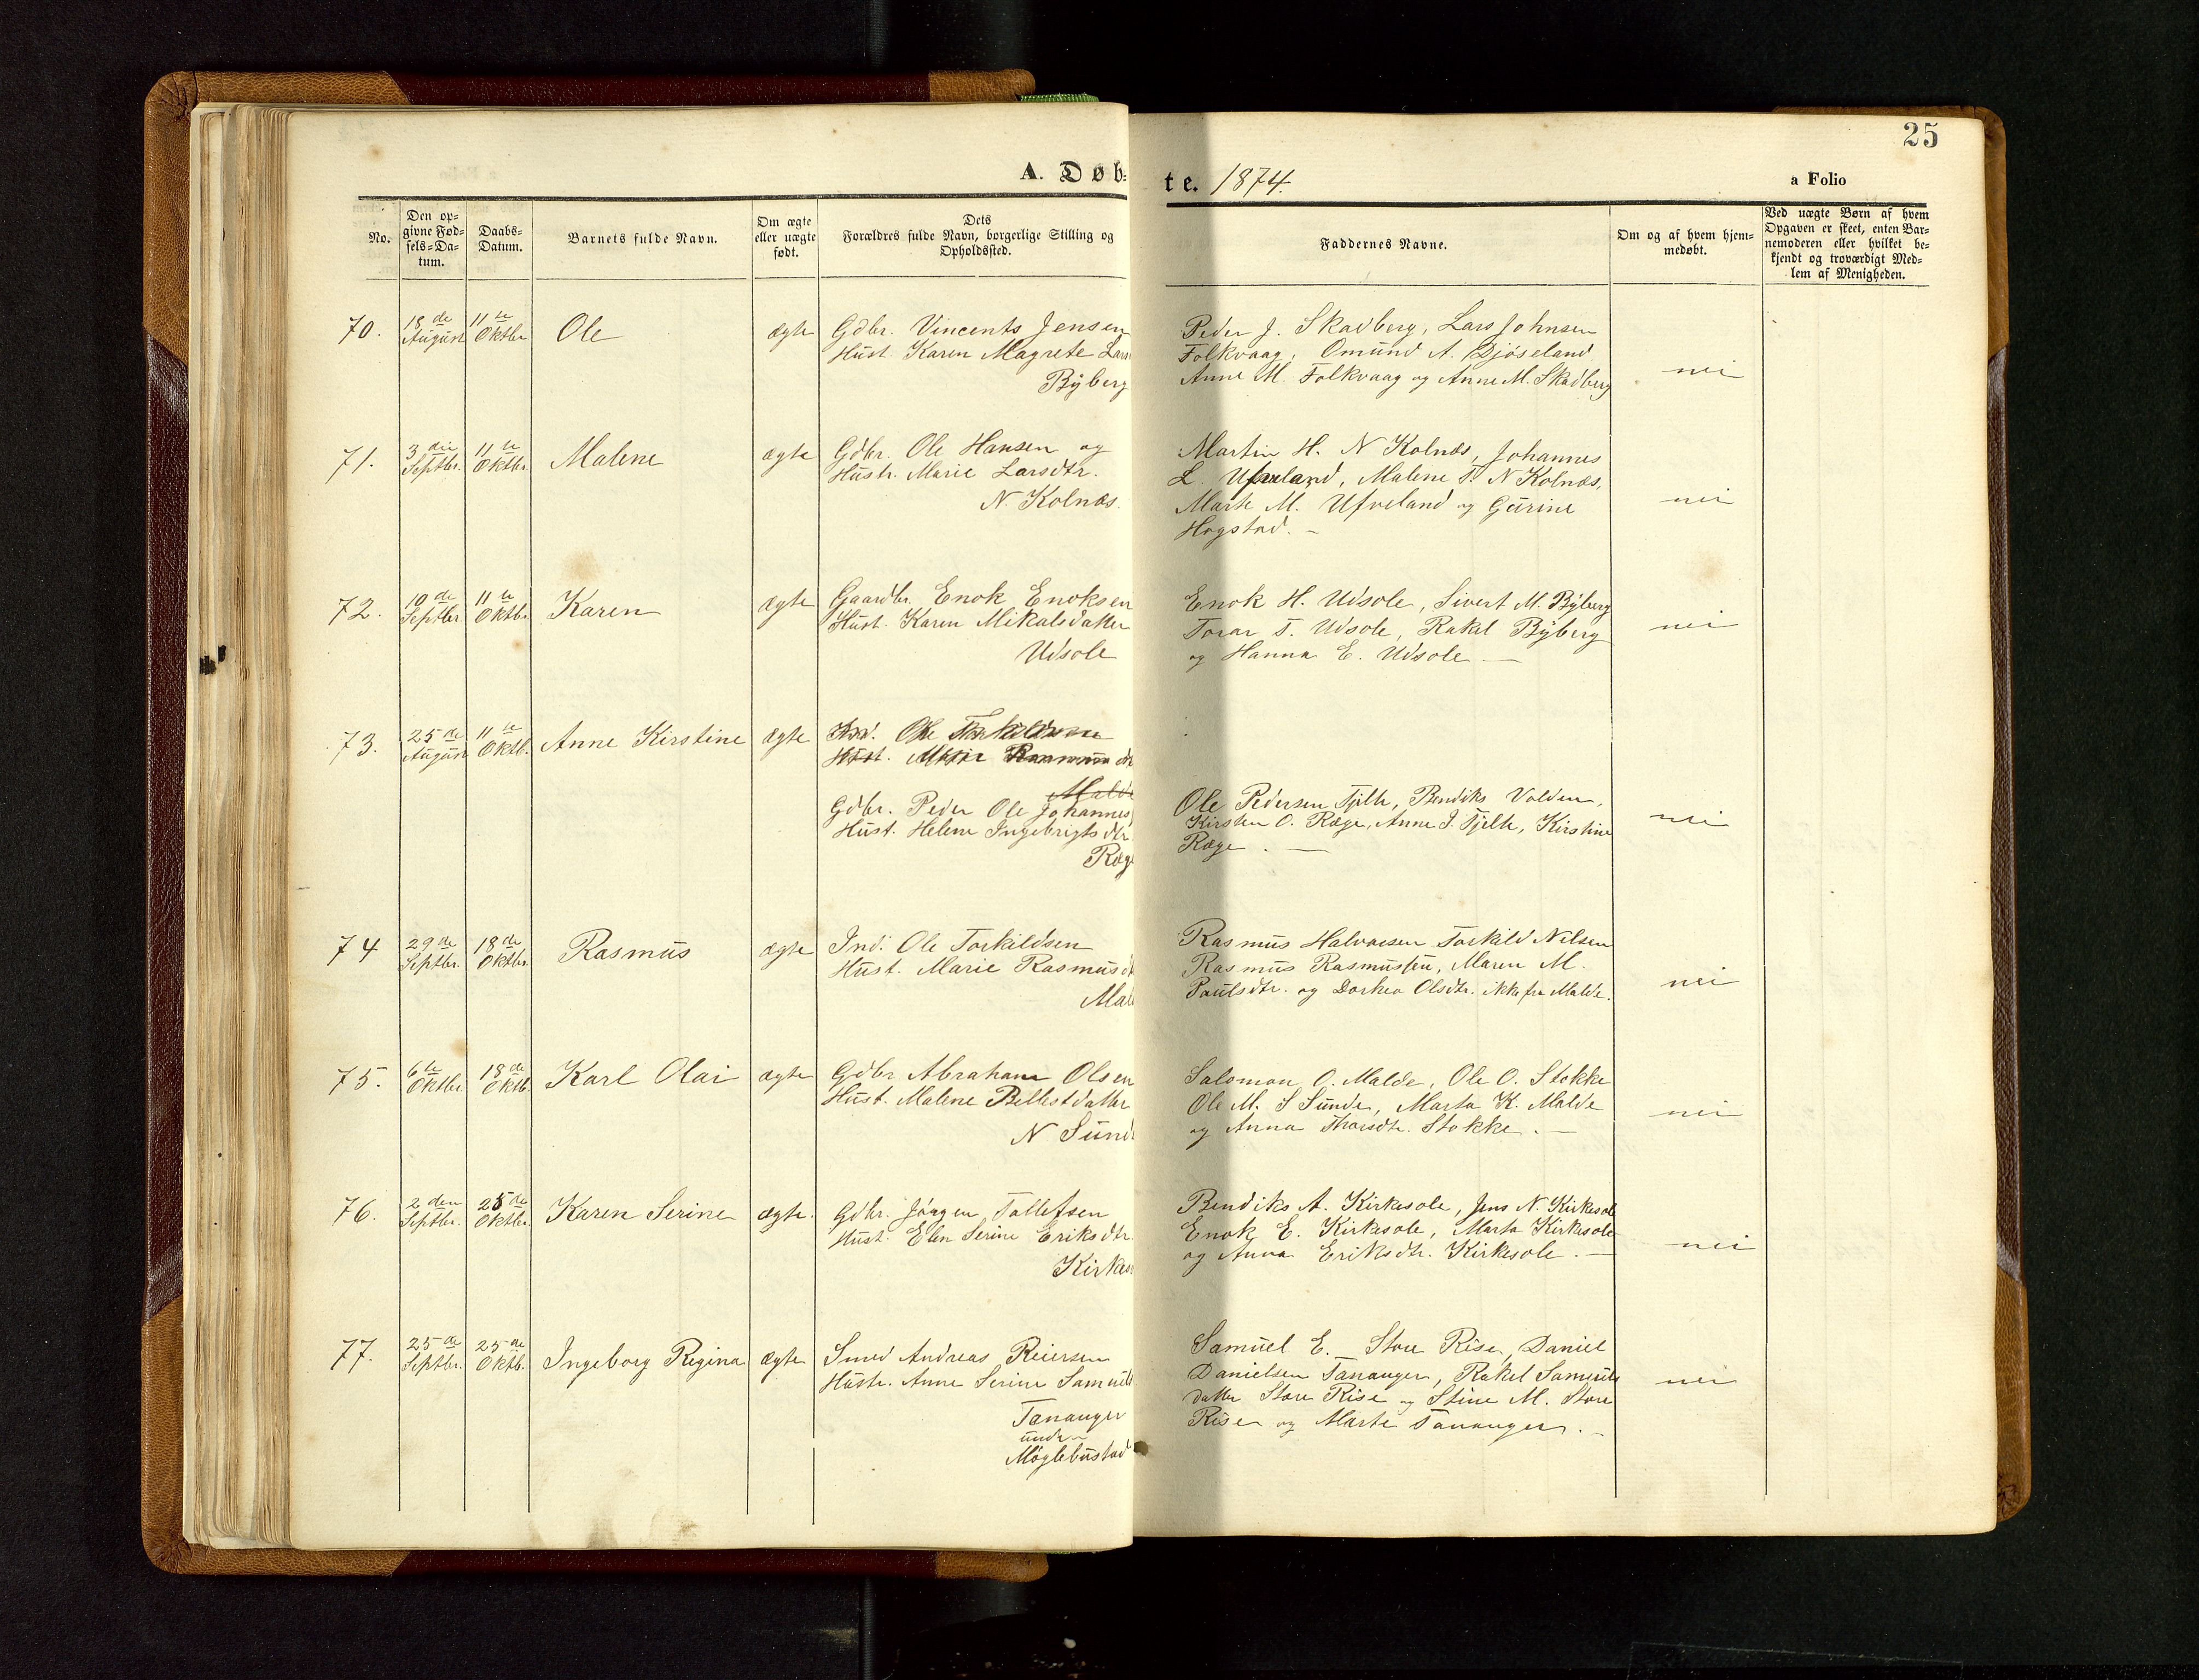 25
A. Døb-
te. 1874.
a Folio
No.
Den op-
givne Fød-
sels-Da-
tum.
Daabs-
Datum.
Barnets fulde Navn.
Om ægte
eller uægte
født.
Dets
Forældres fulde Navn, borgerlige Stilling og
Opholdssted.
Faddernes Navne.
Om og af hvem hjem-
medøbt.
Ved uægte Børn af hvem
Opgaven er skeet, enten Bar-
nemoderen eller hvilket be-
kjendt og troværdigt Med-
lem af Menigheden.
70.
18de
August
11te
Oktbr
Ole
ægte
Gdbr. Vincents Jensen
Hust. Karen Magrete Lars
Byberg
Peder J. Skadberg, Lars Johnsen
Folkvaag, Omund A. Djøseland
Anne M. Folkvaag og Anne M. Skadberg
nei
71.
3die
Septbr.
11te
Oktbr
Malene
ægte
Gdbr. Ole Hansen og
Hustr. Marie Larsdtr.
N. Kolnæs.
Martin H. N Kolnæs, Johannes
L. Ufveland, Malene T. N Kolnæs,
Marte M. Ufveland og Gurine
Hogstad. -
nei
72.
10de
Septbr.
11te
Oktbr
Karen
ægte
Gaardbr. Enok Enoksen
Hust. Karen Mikalsdatter
Udsole
Enok H. Udsole, Sivert M. Byberg
Torar T. Udsole, Rakel Byberg
og Hanna E. Udsole —
nei
73.
25de
August
11te
Oktb.
Anne Kirstine
ægte
Ind. Ole Torkildsen
Hust. Marie Rasmusdt
Malde
Gdbr. Peder Ole Johannes
Hust. Helene Ingebrigtsdtr
Ræge
Ole Pedersen Tjelte, Bendiks Volden,
Kirsten O. Ræge, Anne J. Tjelte, Kirstine
Ræge. —
nei
74
29de
Septbr.
18de
Oktbr
Rasmus
ægte
Ind. Ole Torkildsen
Hust. Marie Rasmusdt
Mal
Rasmus Halvorsen Torkild Nilsen
Rasmus Rasmussen, Maren M.
Paulsdtr. og Dorthea Olsdtr. ikke fra Malde.
nei
75.
6te
Oktbr
18de
Oktb.
Karl Olai
ægte
Gdbr Abraham Olsen
Hust. Malene Bellestdatter
N Sund
Salomon O. Malde, Ole O. Stokke
Ole M. S Sunde, Marta K. Malde
og Anna Thorsdtr. Stokke. —
nei
76.
2den
Septbr.
25de
Oktbr
Karen Serine
ægte.
Gdbr. Jørgen Tollefsen
Hust. Elen Serine Eriksdtr.
Kirkeso
Bendiks A. Kirkesole, Jens N. Kirkesole
Enok E. Kirkesole, Marta Kirkesole
og Anna Eriksdtr. Kirkesole. —
nei
77.
25de
Septbr.
25de
Oktb.
Ingeborg Regina
ægte
Smed Andreas Reiersen
Hustr. Anne Serine Samuels
Tananger
under
Møglebustad
Samuel E. Store Risa, Daniel
Danielsen Tananger, Rakel Samuels
datter Store Rise og Stine M. Store
Rise og Marte Tananger. -
nei